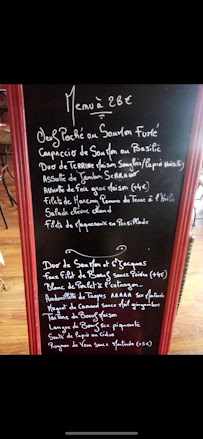 Menu à 28€
Oeuf Poché au Saumon Fumé
Carpaccio de Saumon au Basilic
Duo de Terrine Maison Sanglier/Lapin Noisettes
Assiette de Jambon Serrano
Assiette de Foie gras Maison (+4€)
Filets de Hareng Pomme de Terre à l'Huile
Salade chèvre chaud
Filets de Maquereaux en Persillade
Duo de Saumon et St Jacques
Faux Filet de Boeuf sauce Poivre (+4€)
Blanc de Poulet à l'estragon
Andouillette de Troyes AAAAA sce Moutarde
Magret de Canard sauce Miel gingembre
Tartare de Boeuf Maison
Langue de Boeuf sce piquante
Sauté de Lapin au Cidre
Rognon de Veau sauce Moutarde (+3€)